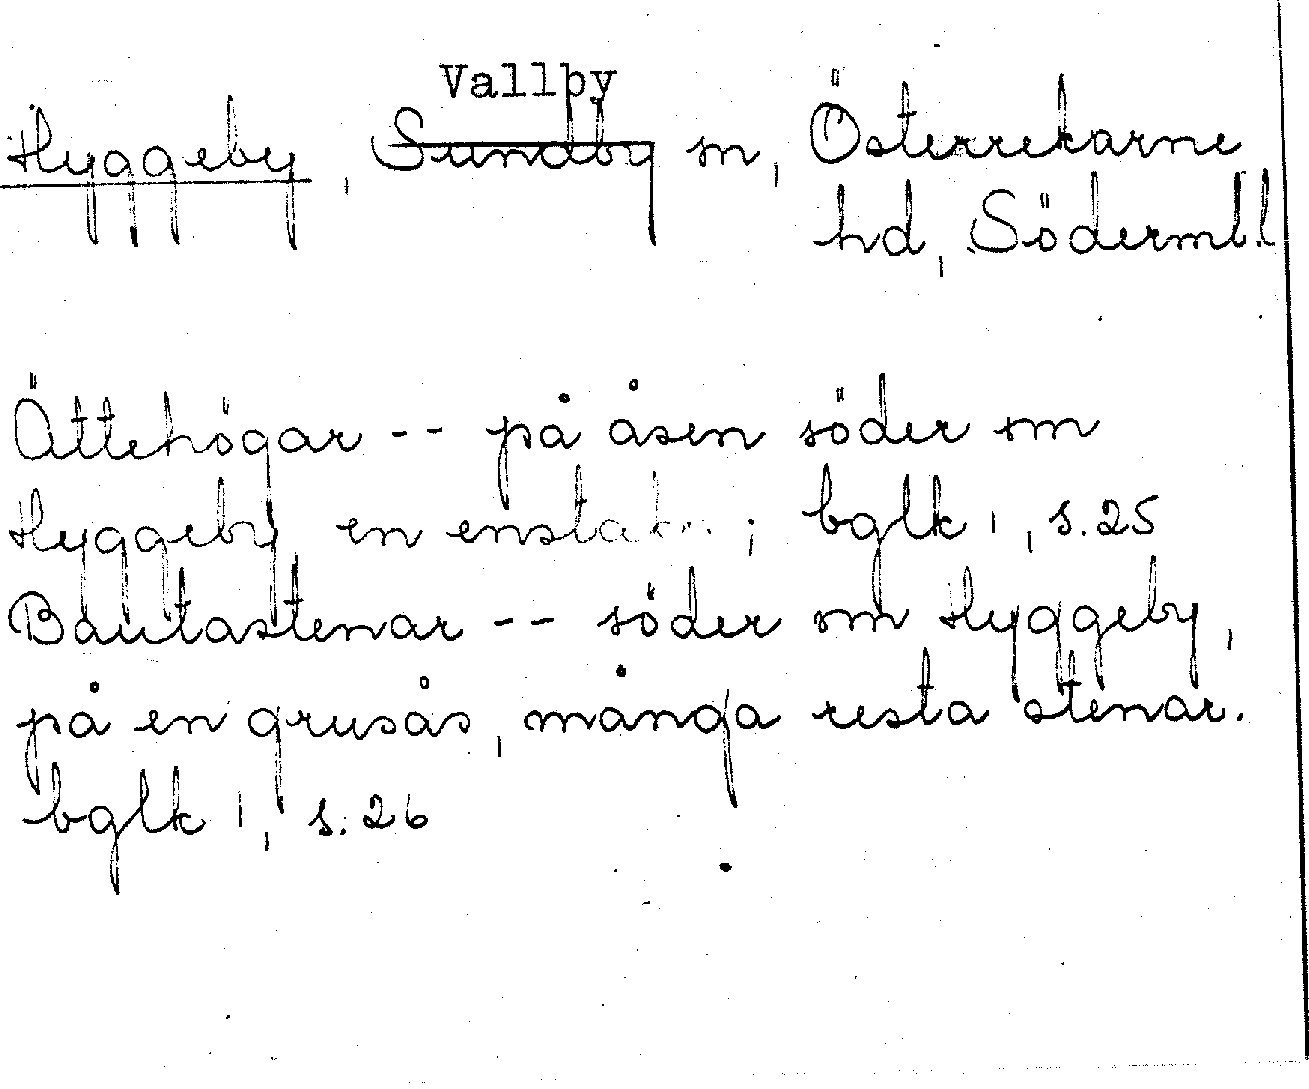 Vallby
Hyggeby, Sundby sn, Österrekarne
hd, Söderml.
Ättehögar -- på åsen söder om
Hyggeby en enstaka; bglk 1, s. 25
Bautastenar -- söder om Hyggeby,
på en grusås, många resta stenar.
bglk 1, s. 26